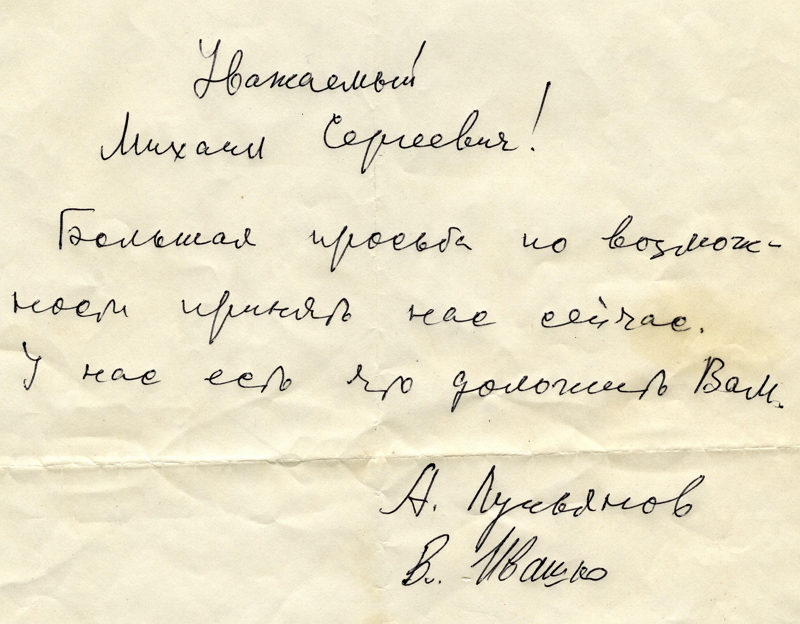 Уважаемый
Михаил Сергеевич!
Большая просьба по возмож-
ности принять нас сейчас.
У нас есть что доложить Вам.
А. Лукьянов
В. Ивашко